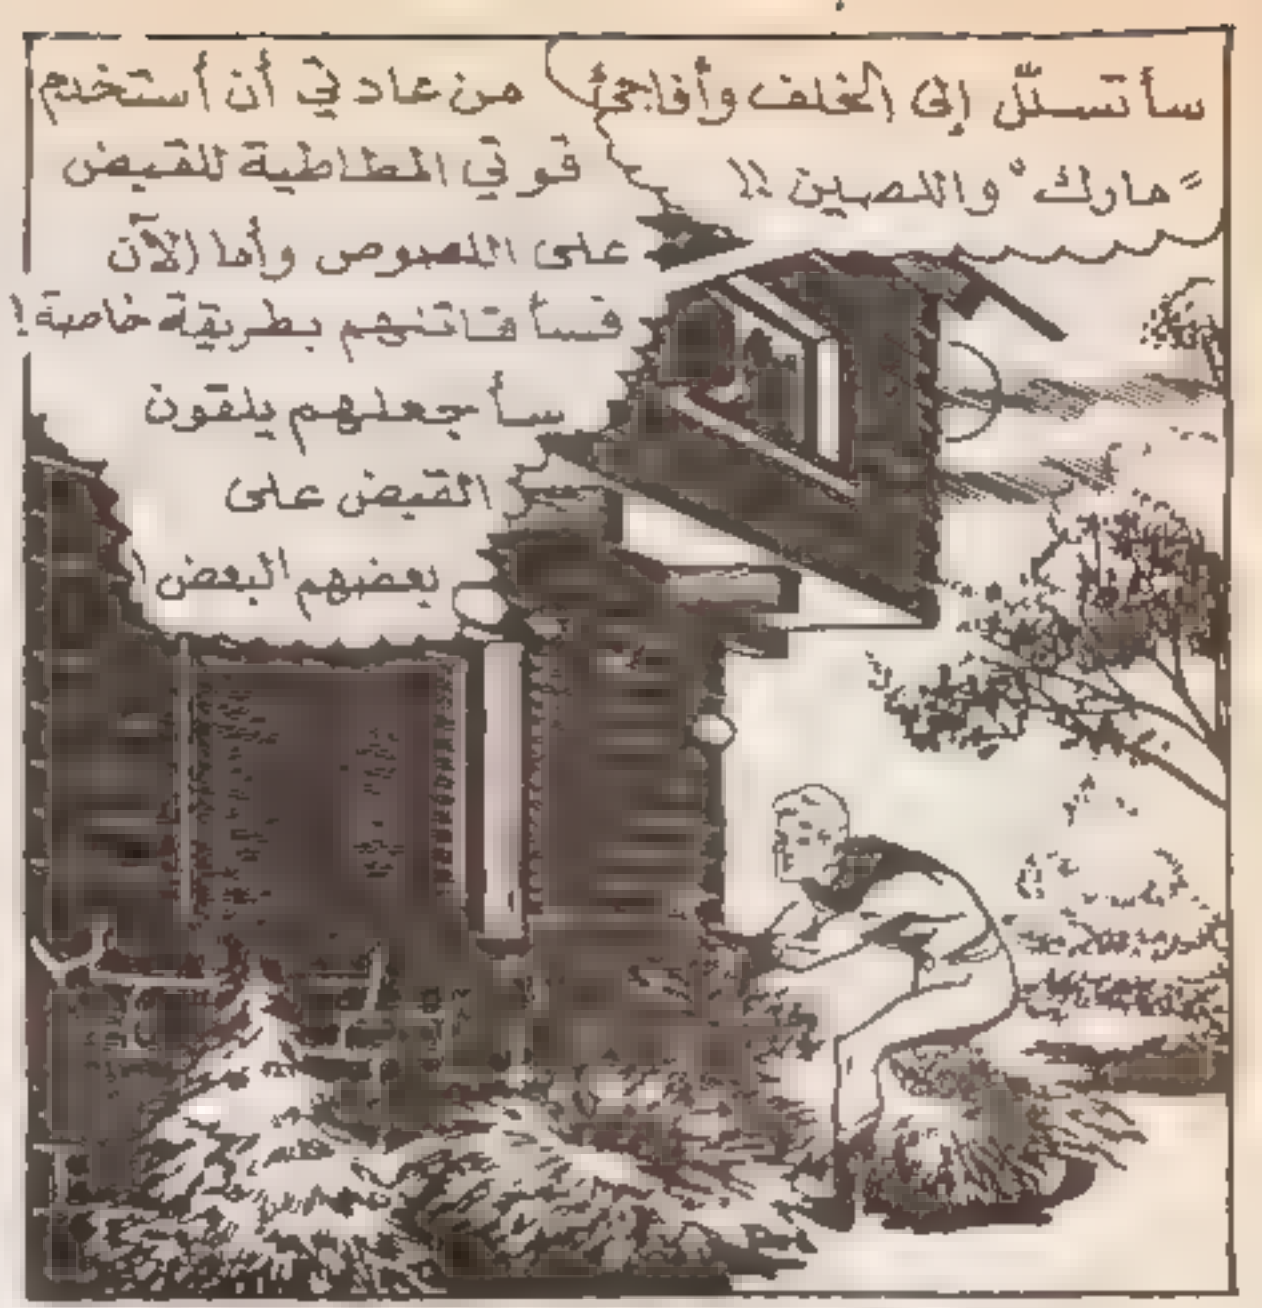 سأتسلّل إلى الخلف وأفاجئ
"مارك" واللصين !!
من عادتي أن أستخدم
قوتي المطاطية للقبض
على اللصوص وأما الآن
فسأقاتلهم بطريقة خاصة !
سأجعلهم يلقون
القبض على
بعضهم البعض !